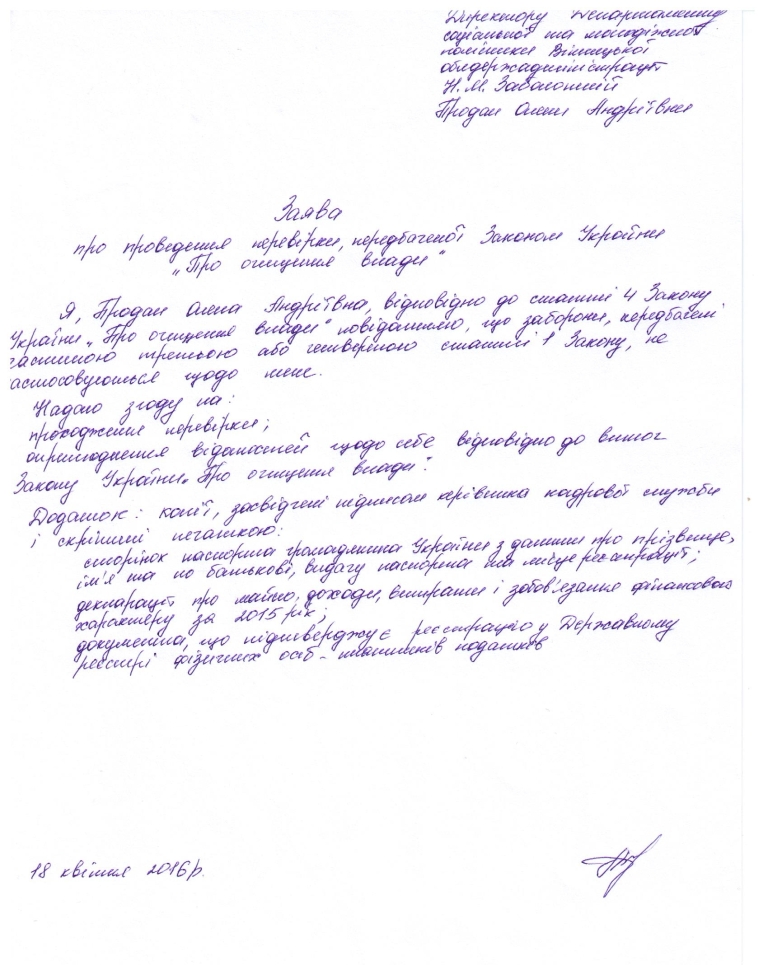 Директору Департаменту
соціальної та молодіжної
політики Вінницької
облдержадміністрації
Н.М. Заболотній
Продан Олени Андріївни
Заява
про проведення перевірки, передбаченої Законом України
„Про очищення влади"
Я, Продан Олена Андріївна, відповідно до статті 4 Закону
України „Про очищення влади" повідомляю, що заборони, передбачені
частиною третьою або четвертою статті 1 Закону, не
астосовуються щодо мене.
Надаю згоду на:
проходження перевірки;
оприлюднення відомостей щодо себе відповідно до вимог
Закону України „Про очищення влади".
Додаток: копії, засвідчені підписом керівника кадрової служби
і скріплені печаткою:
сторінок паспорта громадянина України з даними про прізвище,
ім'я та по батькові, видачу паспорта та місце реєстрації;
декларації про майно, доходи, витрати і зобов'язання фінансового
характеру за 2015 рік;
документа, що підтверджує реєстрацію у Державному
реєстрі фізичних осіб - платників податків
18 квітня 2016 р.